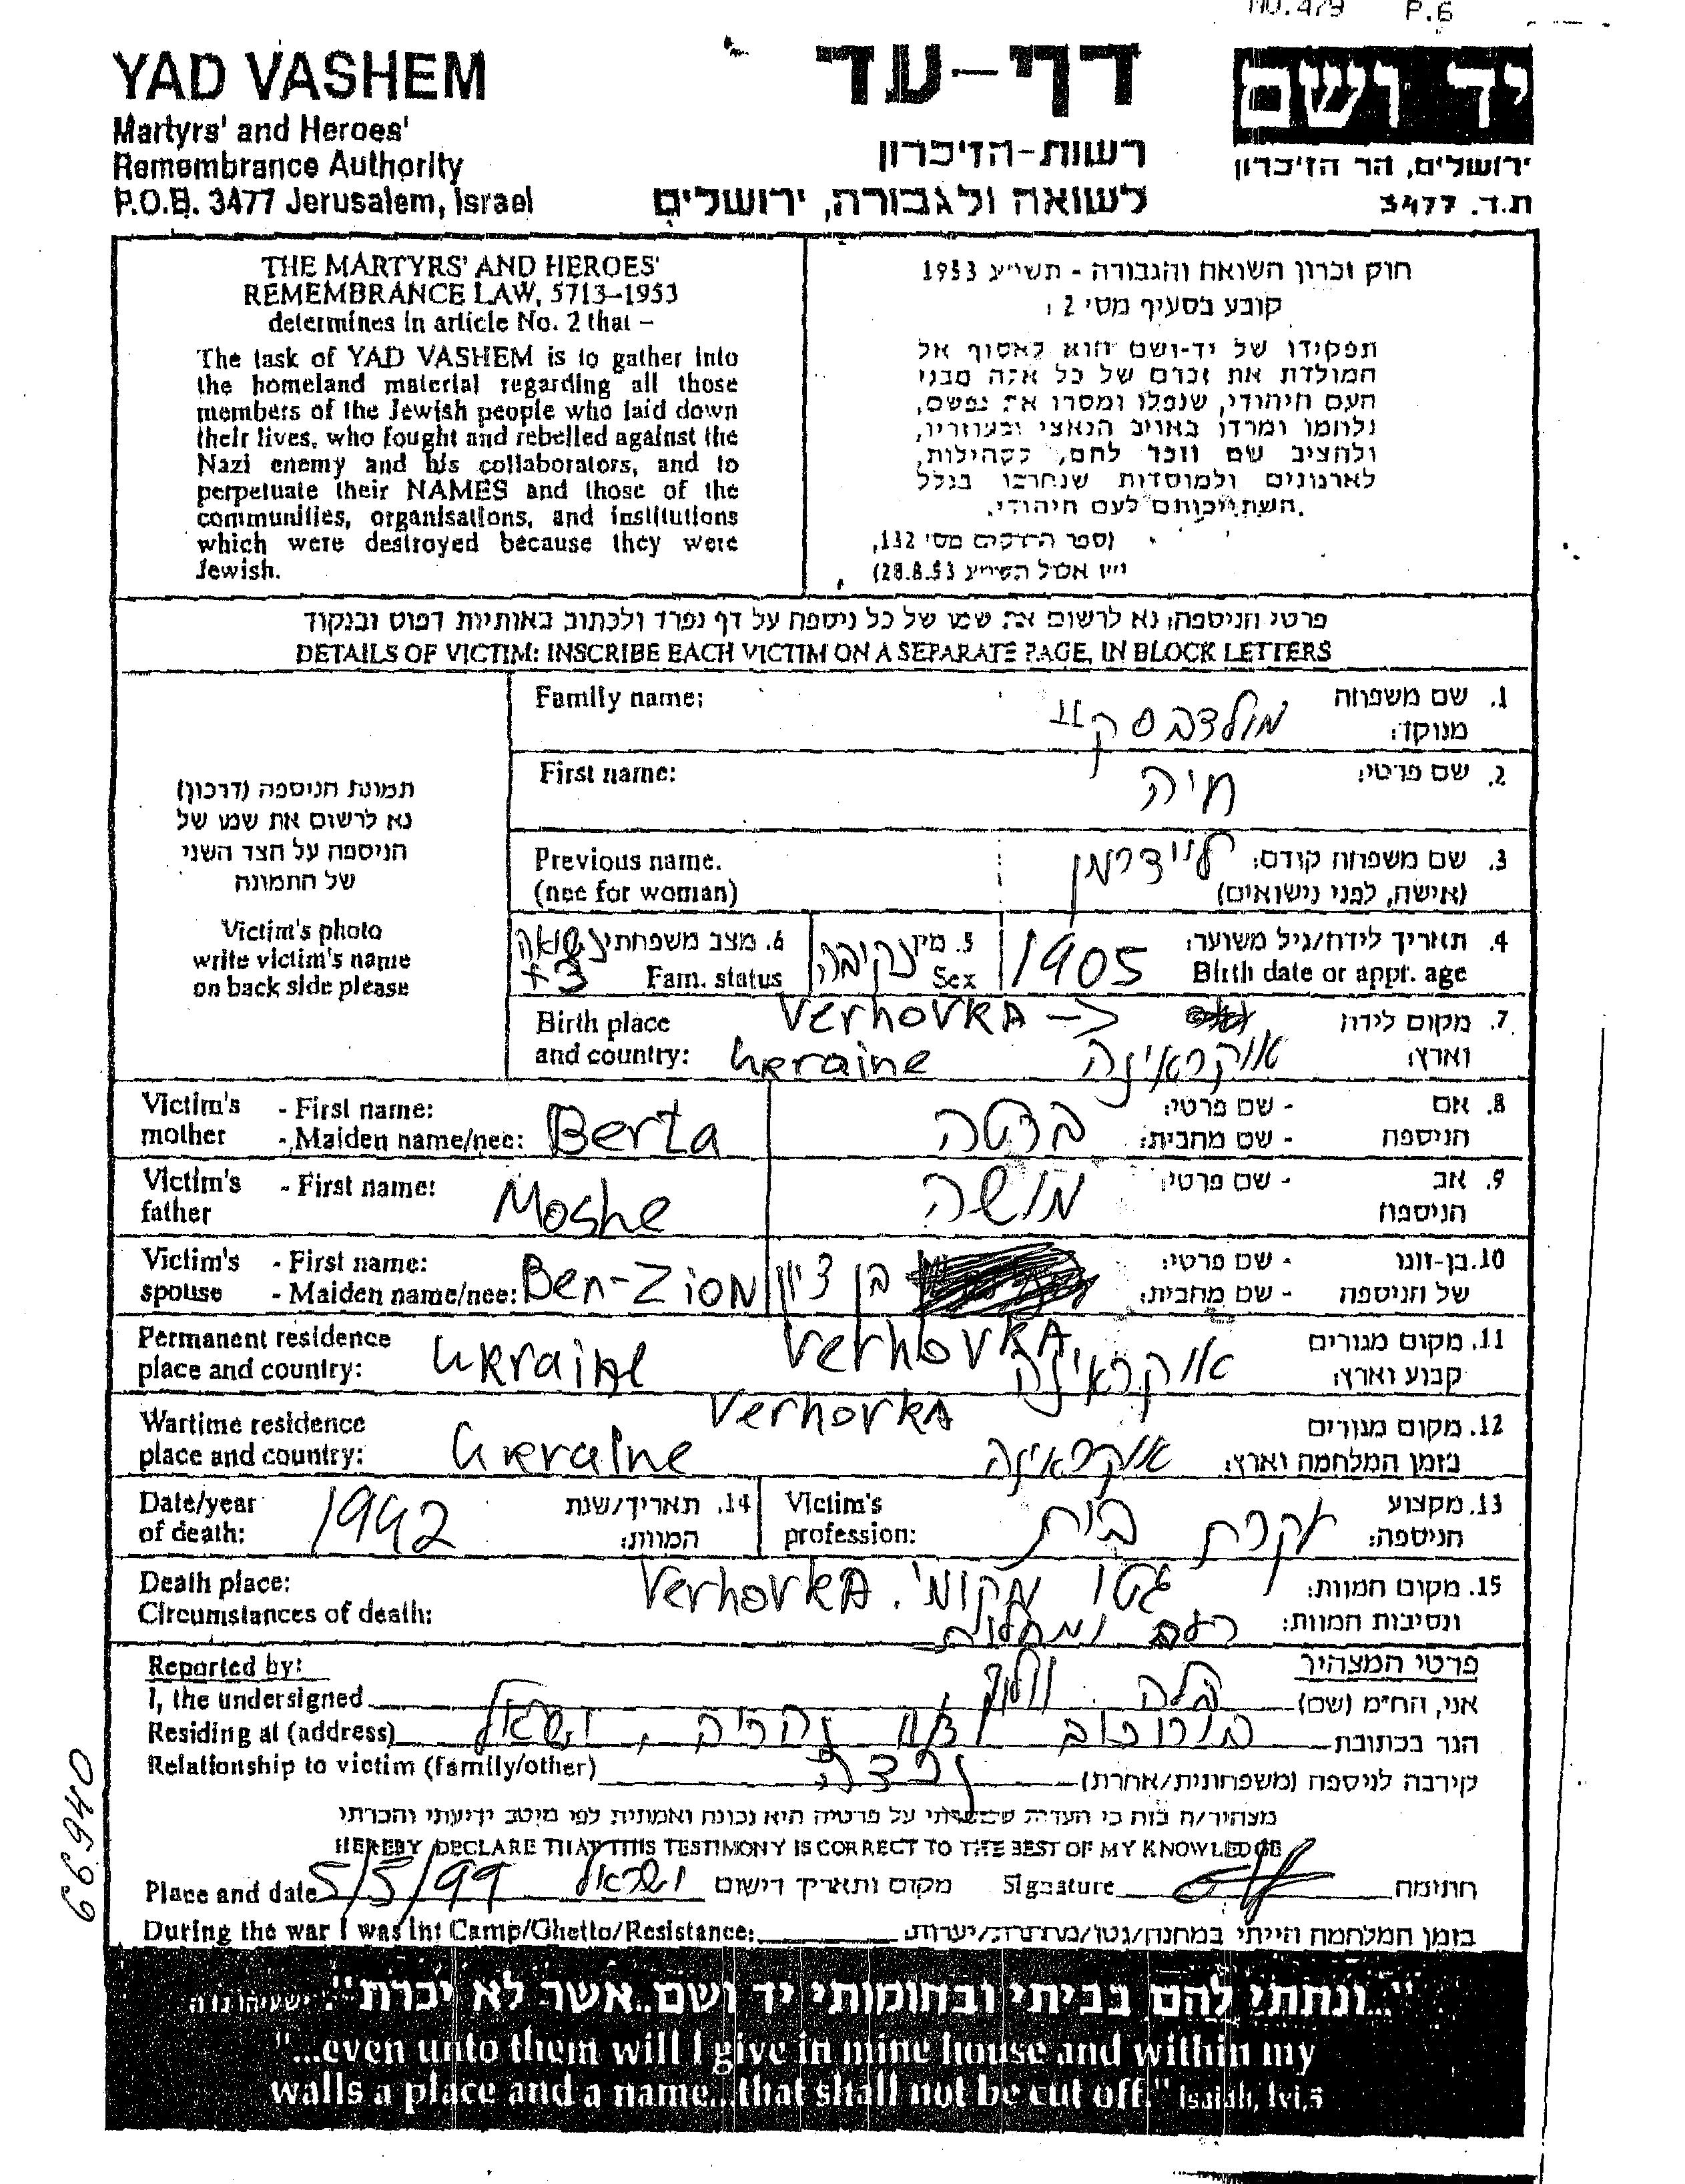 NO. 479 P.6
YAD VASHEM
Martyrs' and Heroes'
Remembrance Authority
P.O.B. 3477 Jerusalem, Israel
דף-עד
רשות-הזיכרון
לשואה ולגבורה, ירושלים
יד ושם
ירושלים, הר הזיכרון
ת.ד. 3477
THE MARTYRS' AND HEROES'
REMEMBRANCE LAW, 5713-1953
determines in article No. 2 that –
The task of YAD VASHEM is to gather into
the homeland material regarding all those
members of the Jewish people who laid down
their lives, who fought and rebelled against the
Nazi enemy and his collaborators, and to
perpetuate their NAMES and those of the
communities, organisations, and institutions
which were destroyed because they were
Jewish.
חוק זכרון השואה והגבורה - תשי״ג 1953
קובע בסעיף מס׳ 2:
תפקידו של יד-ושם הוא לאסוף אל
המולדת את זכרם של כל אלה מבני
העם היהודי, שנפלו ומסרו את נפשם,
נלחמו ומרדו באויב הנאצי ובעוזריו,
ולהציב שם וזכר להם, לקהילות,
לארגונים ולמוסדות שנחרבו בגלל
השתייכותם לעם היהודי.
(ספר החוקים מס׳ 132,
י״ז אלול תשי״ג 28.8.53)
פרטי הניספה: נא לרשום את שמו של כל ניספה על דף נפרד ולכתוב באותיות דפוס ובנקוד
DETAILS OF VICTIM: INSCRIBE EACH VICTIM ON A SEPARATE PAGE, IN BLOCK LETTERS
תמונת הניספה (דרכון)
נא לרשום את שמו של
הניספה על הצד השני
של התמונה
Victim's photo
write victim's name
on back side please
Family name: מולדבסקי 1. שם משפחה
מנוקד:
First name: חיה 2. שם פרטי:
Previous name. לידרמן 3. שם משפחה קודם:
(nee for woman) (אישה, לפני נישואים)
4. תאריך לידה/גיל משוער: 1905 5. מין נקיבה 6. מצב משפחתי נשואה
Birth date or appr. age Sex Fam. status +3
Birth place Verhovka → 7. מקום לידה
and country: Ukraine אוקראינה וארץ:
Victim's - First name: - שם פרטי: 8. אם
mother - Maiden name/nee: Berta ברטה - שם מבית: הניספה
Victim's - First name: - שם פרטי: 9. אב
father Moshe משה הניספה
Victim's - First name: - שם פרטי: 10. בן-זוגו
spouse - Maiden name/nee: Ben-Zion בן ציון - שם מבית: של הניספה
Permanent residence Verhovka 11. מקום מגורים
place and country: Ukraine אוקראינה קבוע וארץ:
Wartime residence Verhovka 12. מקום מגורים
place and country: Ukraine אוקראינה בזמן המלחמה וארץ:
Date/year 14. תאריך/שנת Victim's 13. מקצוע
of death: 1942 המוות: profession: עקרת בית הניספה:
Death place: Verhovka. גטו מקומי 15. מקום המוות:
Circumstances of death: רעב ומחלות ונסיבות המוות:
Reported by: פרטי המצהיר
I, the undersigned בלה אני, הח״מ (שם)
Residing at (address) נהריה, ישראל הגר בכתובת
Relationship to victim (family/other) נכדה קירבה לניספה (משפחתית/אחרת)
מצהיר/ה בזה כי העדות שמסרתי על פרטיה היא נכונה ואמתית לפי מיטב ידיעתי והכרתי
HEREBY DECLARE THAT THIS TESTIMONY IS CORRECT TO THE BEST OF MY KNOWLEDGE
Place and date 5/5/99 ישראל מקום ותאריך רישום Signature חתימה
During the war I was in: Camp/Ghetto/Resistance: בזמן המלחמה הייתי במחנה/גטו/מחתרת/יערות:
66940
"...ונתתי להם בביתי ובחומותי יד ושם..אשר לא יכרת" ישעיהו נו ה
"...even unto them will I give in mine house and within my
walls a place and a name...that shall not be cut off." Isaiah, lvi,5